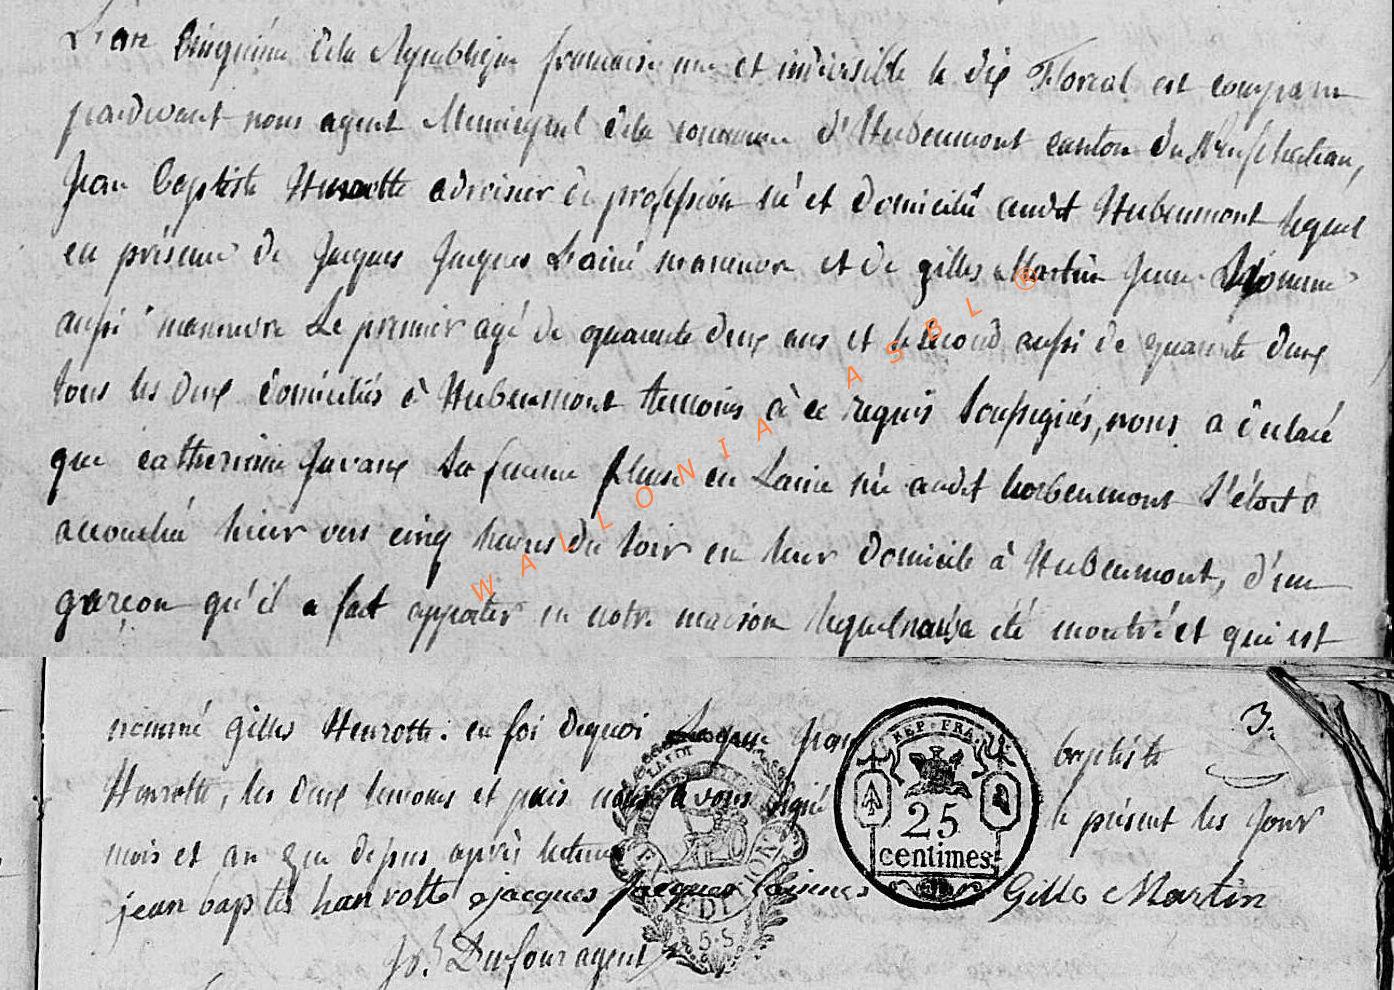 L'an cinquième dela Republique francaise une et indivisible le dix Floreal est comparu
pardevant nous agent Municipal dela commune d'Hubeumont canton du Neufchateau,
Jean Baptiste Henrotte ardoisier de profession né et domicilié audit Hubeumont lequel
en présence de Jacques Jacques L'ainé manœuvre et de gilles Martin Jeune homme
aussi manœuvre Le premier agé de quarante deux ans et le second aussi de quarante deux
tous les deux domiciliés à Hubeumont temoins à ce requis soussignés, nous a déclaré
que catherinne Javaux sa femme fileuse en Laine née audit horbeumont s'étoit
accouchée hier vers cinq heures du soir en leur domicile à Hubeumont, d'un
garçon qu'il a fait apporter en notre maison lequel nous a été montré et qui est
nommé gilles Henrotte. en foi dequoi Jean baptiste
Henrotte, les deux temoins et puis nous avons signé le présent les Jour
mois et an que dessus après lecture
jean baptis hanrotte jacques jacques Gille Martin
Jos. Dufour agent
3.
REP. FRA.
25
centimes.
WALLONIA ASBL ®